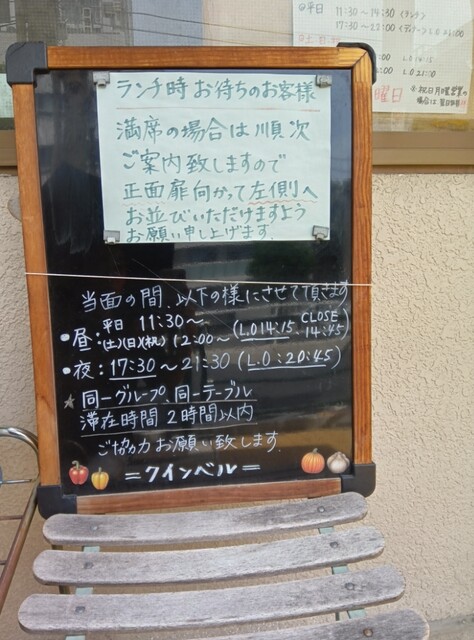 平日 11:30～14:30 (ランチ)
17:30～22:00 (ディナー) L.O 21:00
土日祝
L.O 14:15
L.O 21:00
曜日
ランチ時 お待ちのお客様
満席の場合は順次
ご案内致しますので
正面扉向かって左側へ
お並びいただけますよう
お願い申し上げます。
当面の間、以下の様にさせて頂きます
●昼:平日 11:30～
(土)(日)(祝) 12:00～ (L.O14:15 CLOSE 14:45)
●夜:17:30～21:30 (L.O:20:45)
★同一グループ、同一テーブル
滞在時間 2時間以内
ご協力お願い致します。
=クインベル=